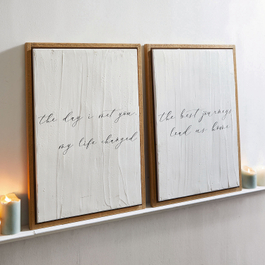 the day i met you
my life changed
the best journeys
lead us home